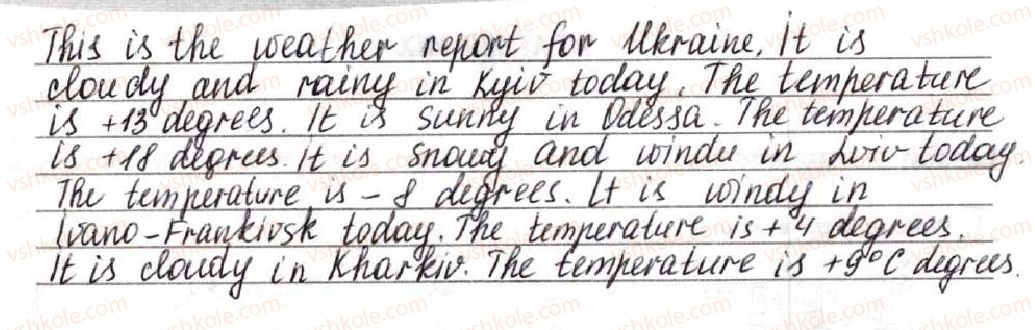 This is the weather report for Ukraine. It is
cloudy and rainy in Kyiv today. The temperature
is +13 degrees. It is sunny in Odessa. The temperature
is +18 degrees. It is snowy and windy in Lviv today.
The temperature is -8 degrees. It is windy in
Ivano-Frankivsk today. The temperature is +4 degrees.
It is cloudy in Kharkiv. The temperature is +9°C degrees.